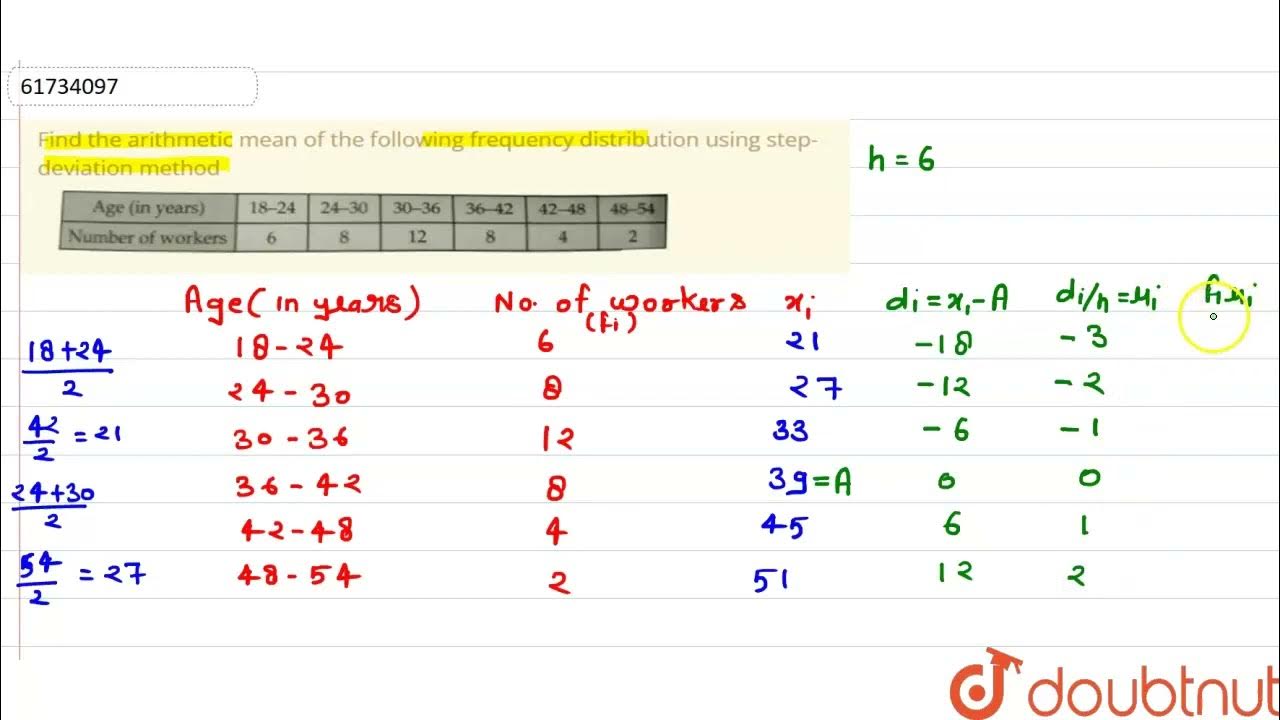 61734097
Find the arithmetic mean of the following frequency distribution using step-
deviation method
h = 6
Age (in years) 18–24 24–30 30–36 36–42 42–48 48–54
Number of workers 6 8 12 8 4 2
Age (in years) No. of workers xi di = xi - A di/h = ui fiui
(fi)
18+24/2 18 - 24 6 21 -18 -3
24 - 30 8 27 -12 -2
42/2 = 21 30 - 36 12 33 -6 -1
24+30/2 36 - 42 8 39 = A 0 0
42 - 48 4 45 6 1
54/2 = 27 48 - 54 2 51 12 2
doubtnut